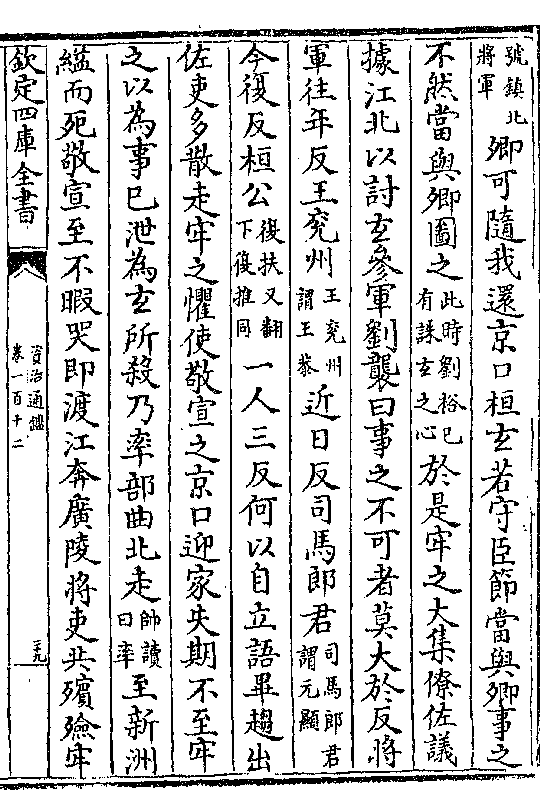 號鎮北將軍卿可隨我還京口桓玄若守臣節當與卿事之
不然當與卿圖之此時劉裕已有誅玄之心於是牢之大集僚佐議
據江北以討玄參軍劉襲曰事之不可者莫大於反將
軍往年反王兖州王兖州謂王恭近日反司馬郎君司馬郎君謂元顯
今復反桓公復扶又翻下復推同一人三反何以自立語畢趨出
佐吏多散走牢之懼使敬宣之京口迎家失期不至牢
之以為事已泄為玄所殺乃率部曲北走帥讀曰率至新洲
縊而死敬宣至不暇哭即渡江奔廣陵將吏共殯殮牢
欽定四庫全書
資治通鑑
卷一百十二
三十九